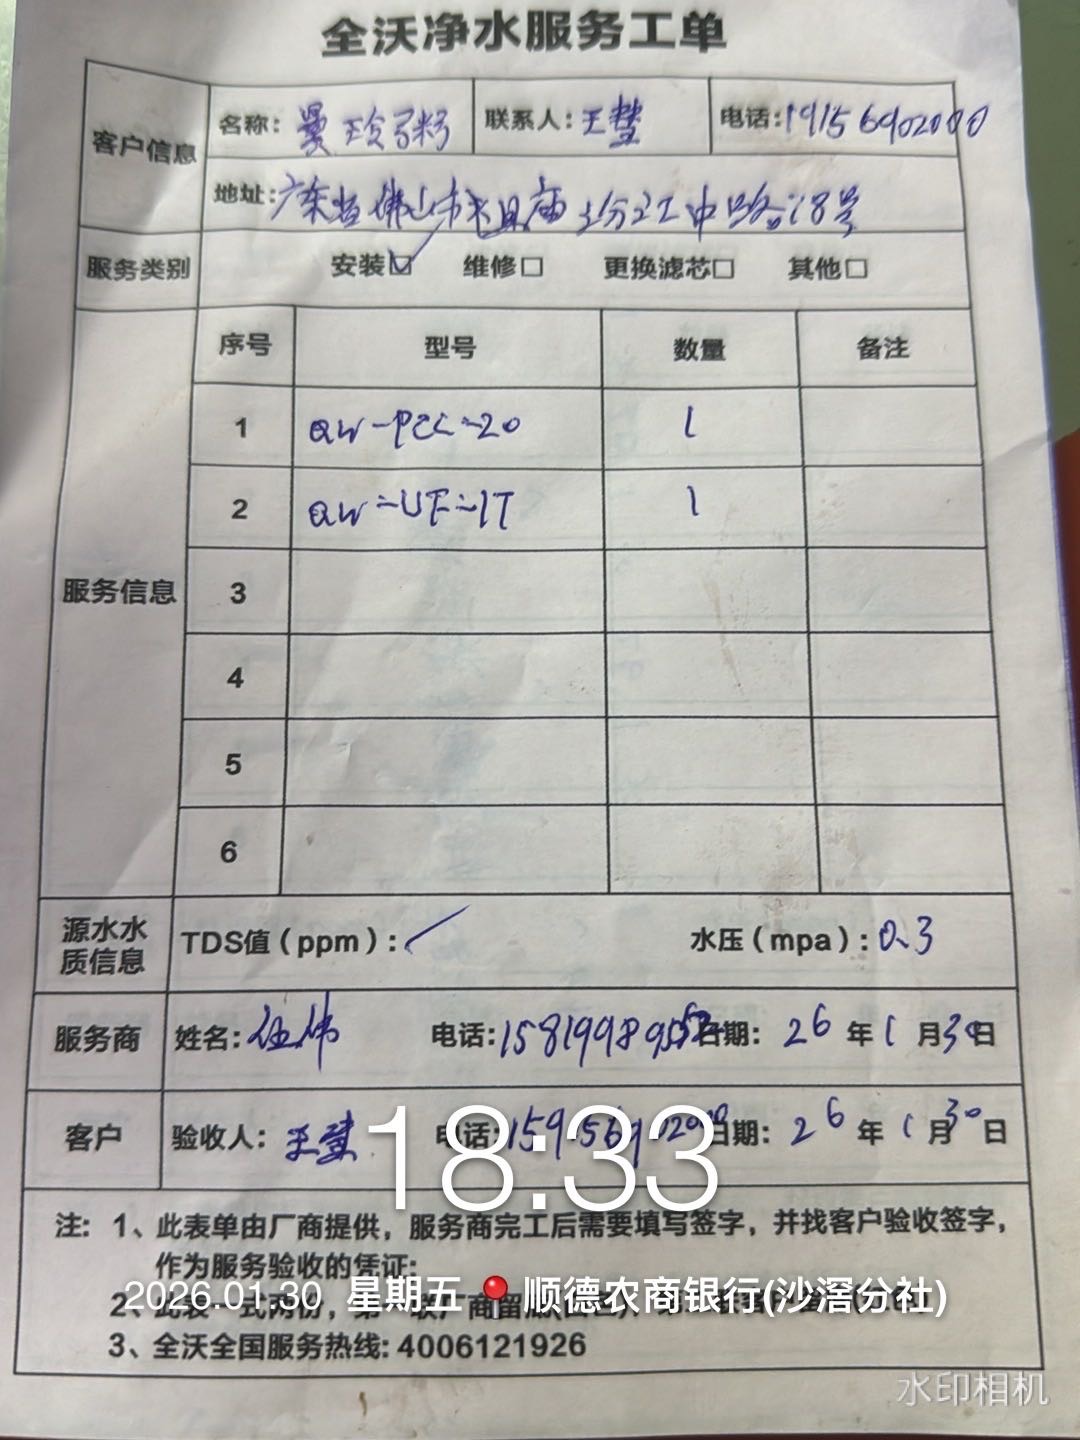 全沃净水服务工单
客户信息
名称: 联系人: 王 电话:19156902000
地址:广东省佛山市 庙 中路 8号
服务类别 安装☑ 维修□ 更换滤芯□ 其他□
服务信息
序号 型号 数量 备注
1 QW-PCC-20 1
2 QW-UF-1T 1
3
4
5
6
源水水质信息 TDS值(ppm): / 水压(mpa):0.3
服务商 姓名:伍伟 电话:158199895 日期: 26 年 1 月 30 日
客户 验收人:王 电话: 日期: 26 年 1 月 30 日
18:33
注: 1、此表单由厂商提供，服务商完工后需要填写签字，并找客户验收签字，
作为服务验收的凭证;
2、此表一式两份，第一联厂商留底
2026.01.30 星期五 顺德农商银行(沙滘分社)
3、全沃全国服务热线: 4006121926
水印相机